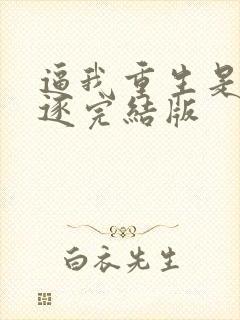 逼我重生是
逐完结版
白衣先生